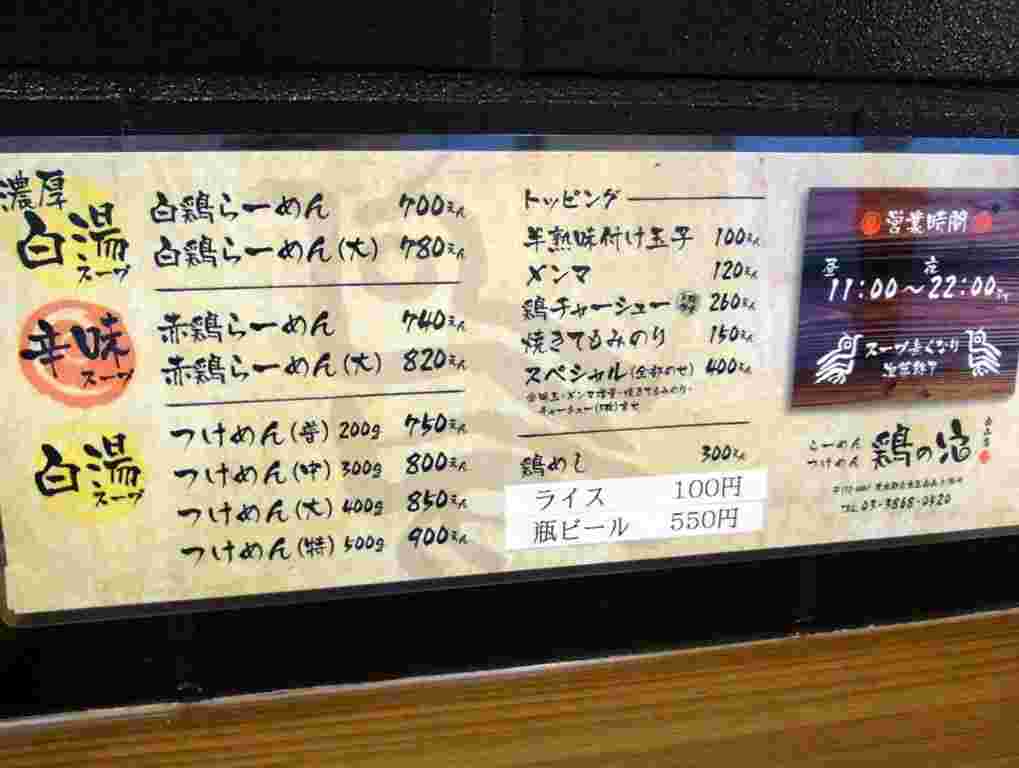 濃厚
白湯
スープ
白鶏らーめん 700えん
白鶏らーめん(大) 780えん
辛味
スープ
赤鶏らーめん 740えん
赤鶏らーめん(大) 820えん
白湯
スープ
つけめん(普)200g 750えん
つけめん(中)300g 800えん
つけめん(大)400g 850えん
つけめん(特)500g 900えん
トッピング
半熟味付け玉子 100えん
メンマ 120えん
鶏チャーシュー 260えん
焼きてもみのり 150えん
スペシャル(全部のせ) 400えん
鶏めし 300えん
ライス 100円
瓶ビール 550円
営業時間
昼 夜
11:00~22:00
スープ無くなり
営業終了
らーめん
つけめん
鶏の
TEL 03-3868-0420